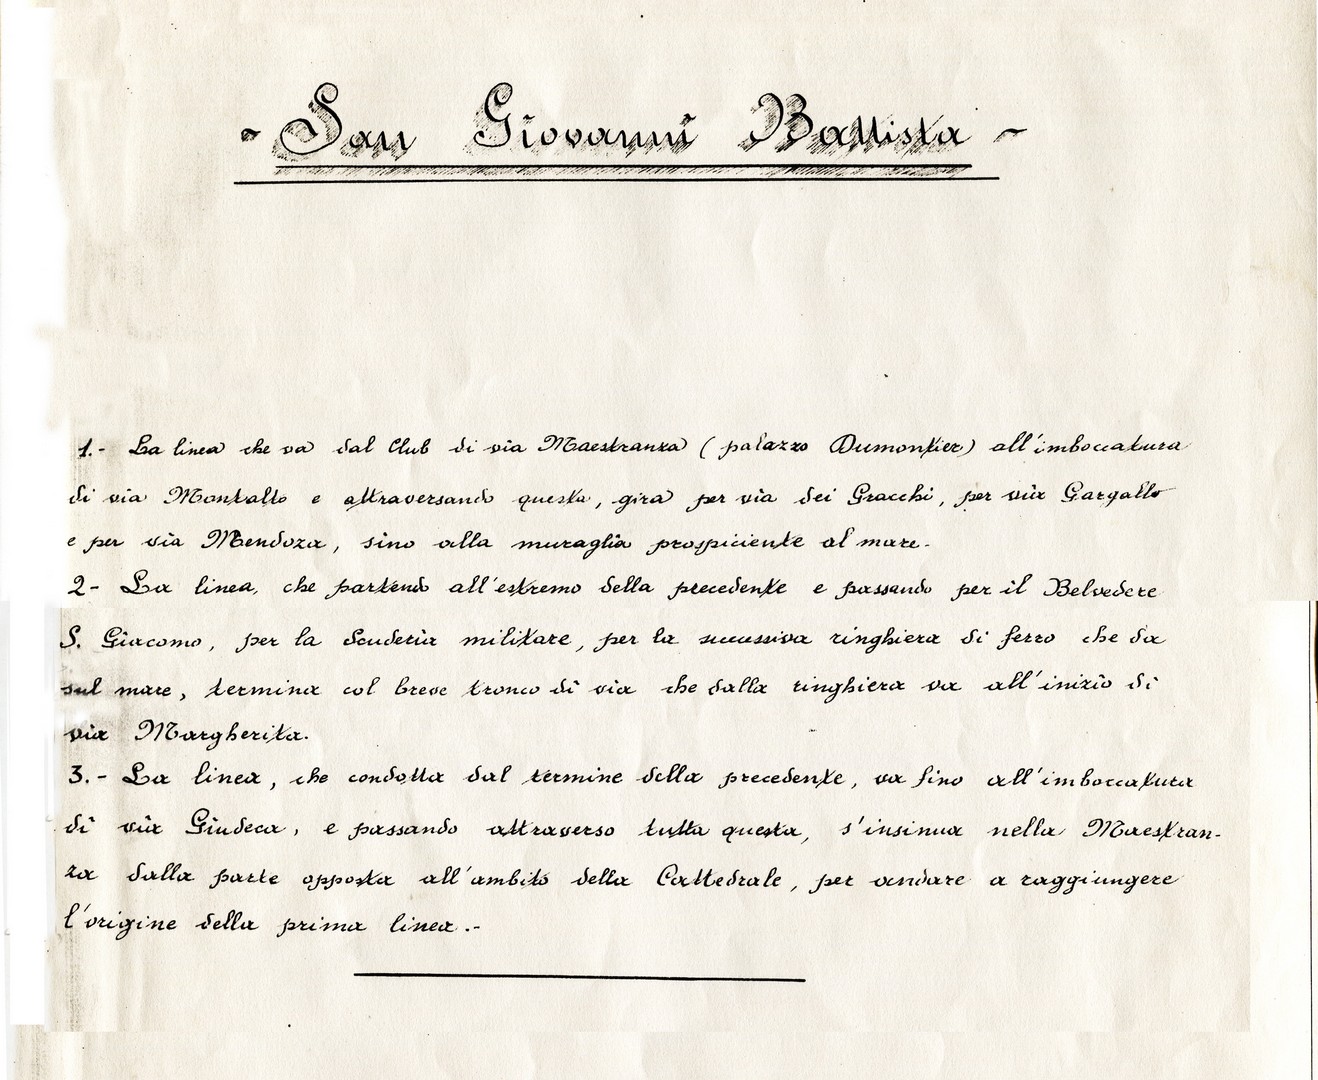 - San Giovanni Battista -
1.- La linea che va dal Club di via Maestranza ( palazzo Dumontier) all'imboccatura
di via Montalto e attraversando questa, gira per via dei Gracchi, per via Gargallo
e per via Mendoza, sino alla muraglia prospiciente al mare.
2- La linea, che partendo all'estremo della precedente e passando per il Belvedere
S. Giacomo, per la Scuderia militare, per la successiva ringhiera di ferro che da
sul mare, termina col breve tronco di via che dalla ringhiera va all'inizio di
via Margherita.
3.- La linea, che condotta dal termine della precedente, va fino all'imboccatura
di via Giudeca, e passando attraverso tutta questa, s'insinua nella Maestran-
za dalla parte opposta all'ambito della Cattedrale, per andare a raggiungere
l'origine della prima linea.-